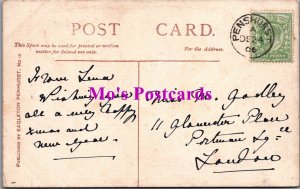 POST CARD.
This Space may be used for printed or written
matter for Inland use only.
For the Address.
PENSHURST
DE 24
06
PUBLISHED BY EAGLETON PENHURST. No 4
From Lena
Wishing you
all a very Happy
Xmas and
New Year
Mo's Postcards
Miss A. Godley
11 Gloucester Place
Portman Sqre
London